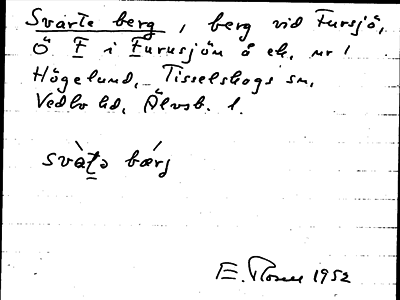 Svarte berg, berg vid Fursjö,
Ö. F i Furusjön å ek. nr 1
Högelund, Tisselskogs sn,
Vedbo hd, Älvsb. l.
svàt̠ə bǽrj
E. Rosen 1952